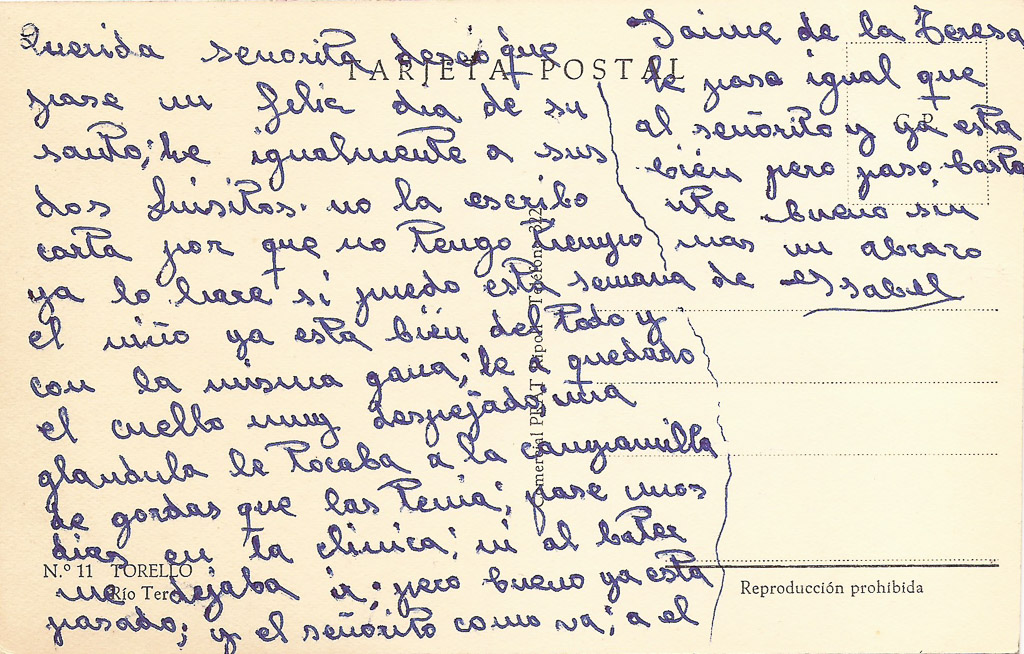 Querida señorita deseo que
pase un feliz dia de su
santo; he igualmente a sus
dos Luisitos. no la escribo
carta por que no tengo tiempo
ya lo hare si puedo esta semana
el niño ya esta bién del todo y
con la misma gana; le a quedado
el cuello muy despejado, una
glandula le tocaba a la campanilla
de gordas que las tenia; pase unos
dias en la clinica; ni al bater
me dejaba ir; pero bueno ya esta
pasado; y el señorito como va; a el
Jaime de la Teresa
le pasa igual que
al señorito y ya esta
bién pero paso basta
nte bueno sin
mas un abrazo
de Issabel
TARJETA POSTAL
G. P.
Comercial PRAT Teléfono 212
N.º 11 TORELLÓ
Río Ter
Reproducción prohibida